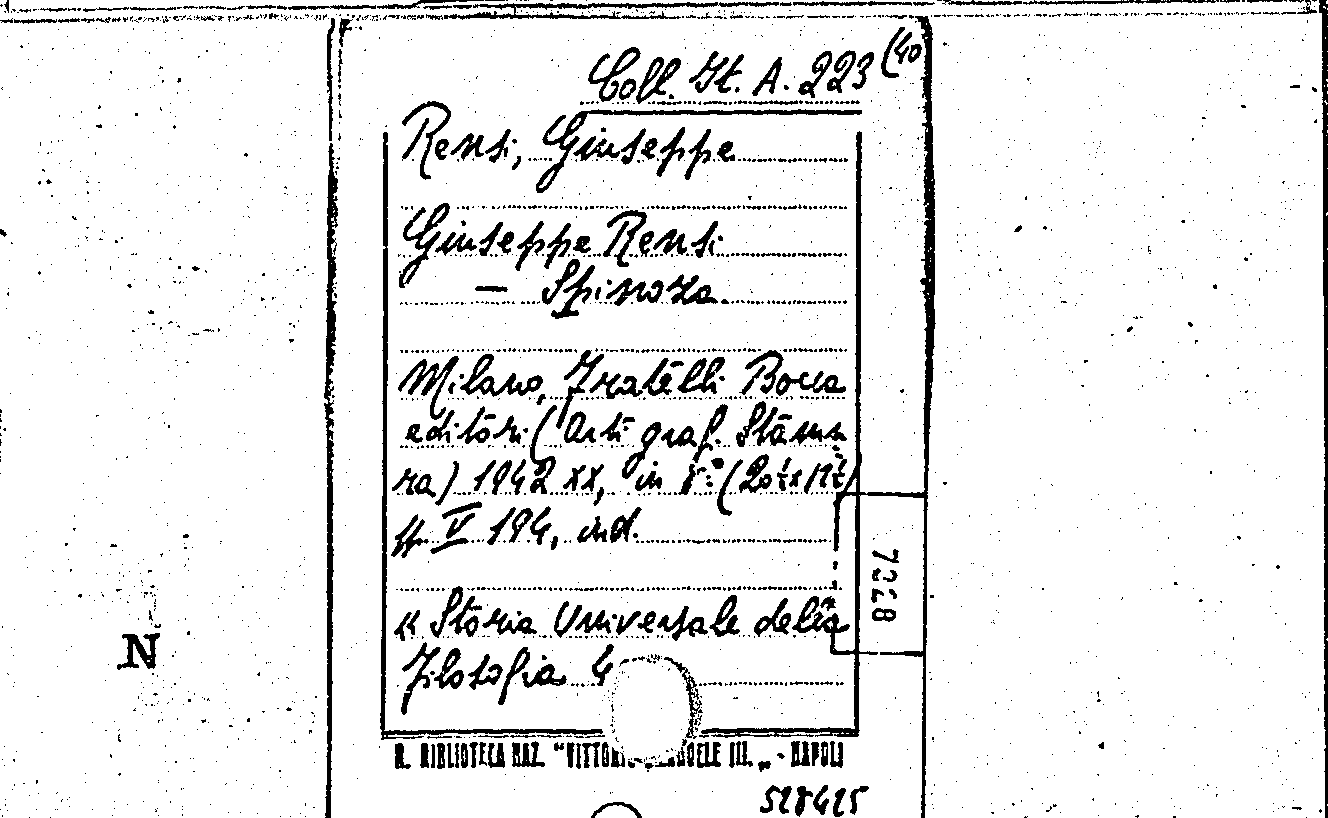 Coll. It. A. 223 (40
Rensi, Giuseppe
Giuseppe Rensi
— Spinoza.
Milano, Fratelli Bocca
editori (Arti graf. Stamp
ra) 1942 XX, in 8.° (20½x12½)
pp. V 194, ind.
« Storia Universale della
Filosofia 4
R. BIBLIOTECA NAZ. "VITTORIO EMANUELE III. „ - NAPOLI
528425
7228
N